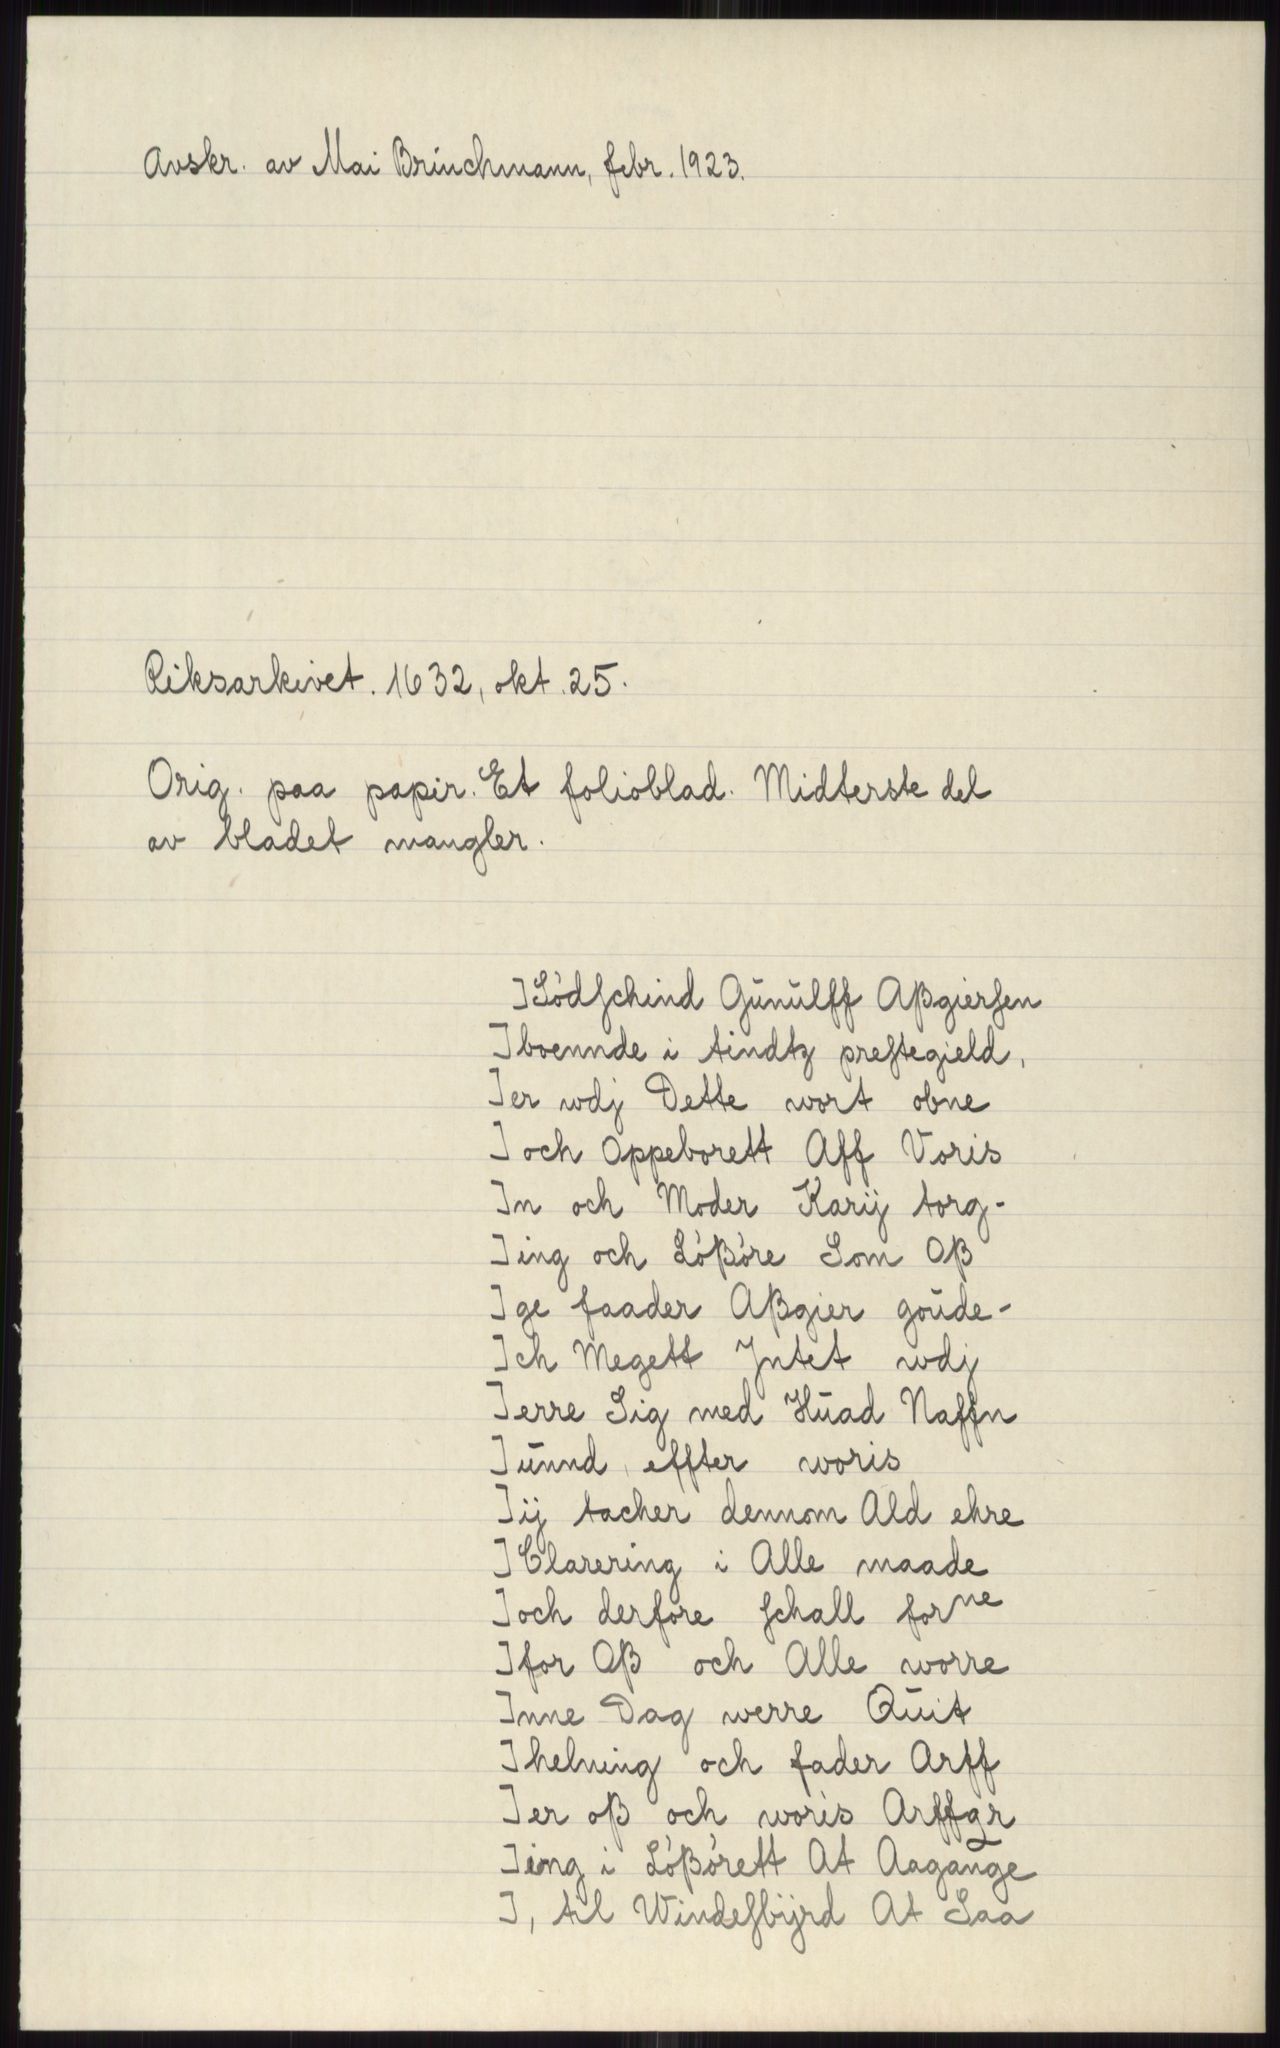 Avskr. av Mai Brinchmann, febr. 1923.
Riksarkivet. 1632, okt. 25.
Orig. paa papir. Et folioblad. Midterste del
av bladet mangler.
]Sòdſchind Gŭnŭlff Aßgierſen
]boennde i tindtz preſtegield,
]er wdj Dette wort obne
]och Oppeborett Aff Voris
]n och Moder Karij torg-
]ing och Lòßòre Som Oß
]ge faader Aßgier goŭde-
]ch Megett Jntet wdj
]erre Sig med Hŭad Naffn
]ŭnnd effter woris
]ij tacher dennom Ald ehre
]Clarering i Alle maade
]och derfore ſchall forne
]for Oß och Alle worre
]nne Dag werre Qŭit
]helning och fader Arff
]er oß och woris Arffgr
]ing i Lòßòrett At Aagange
], til Windeſbijrd At Saa